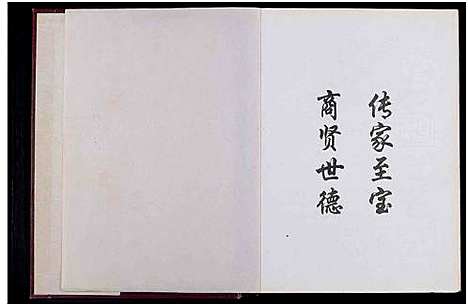 传家至宝
商贤世德